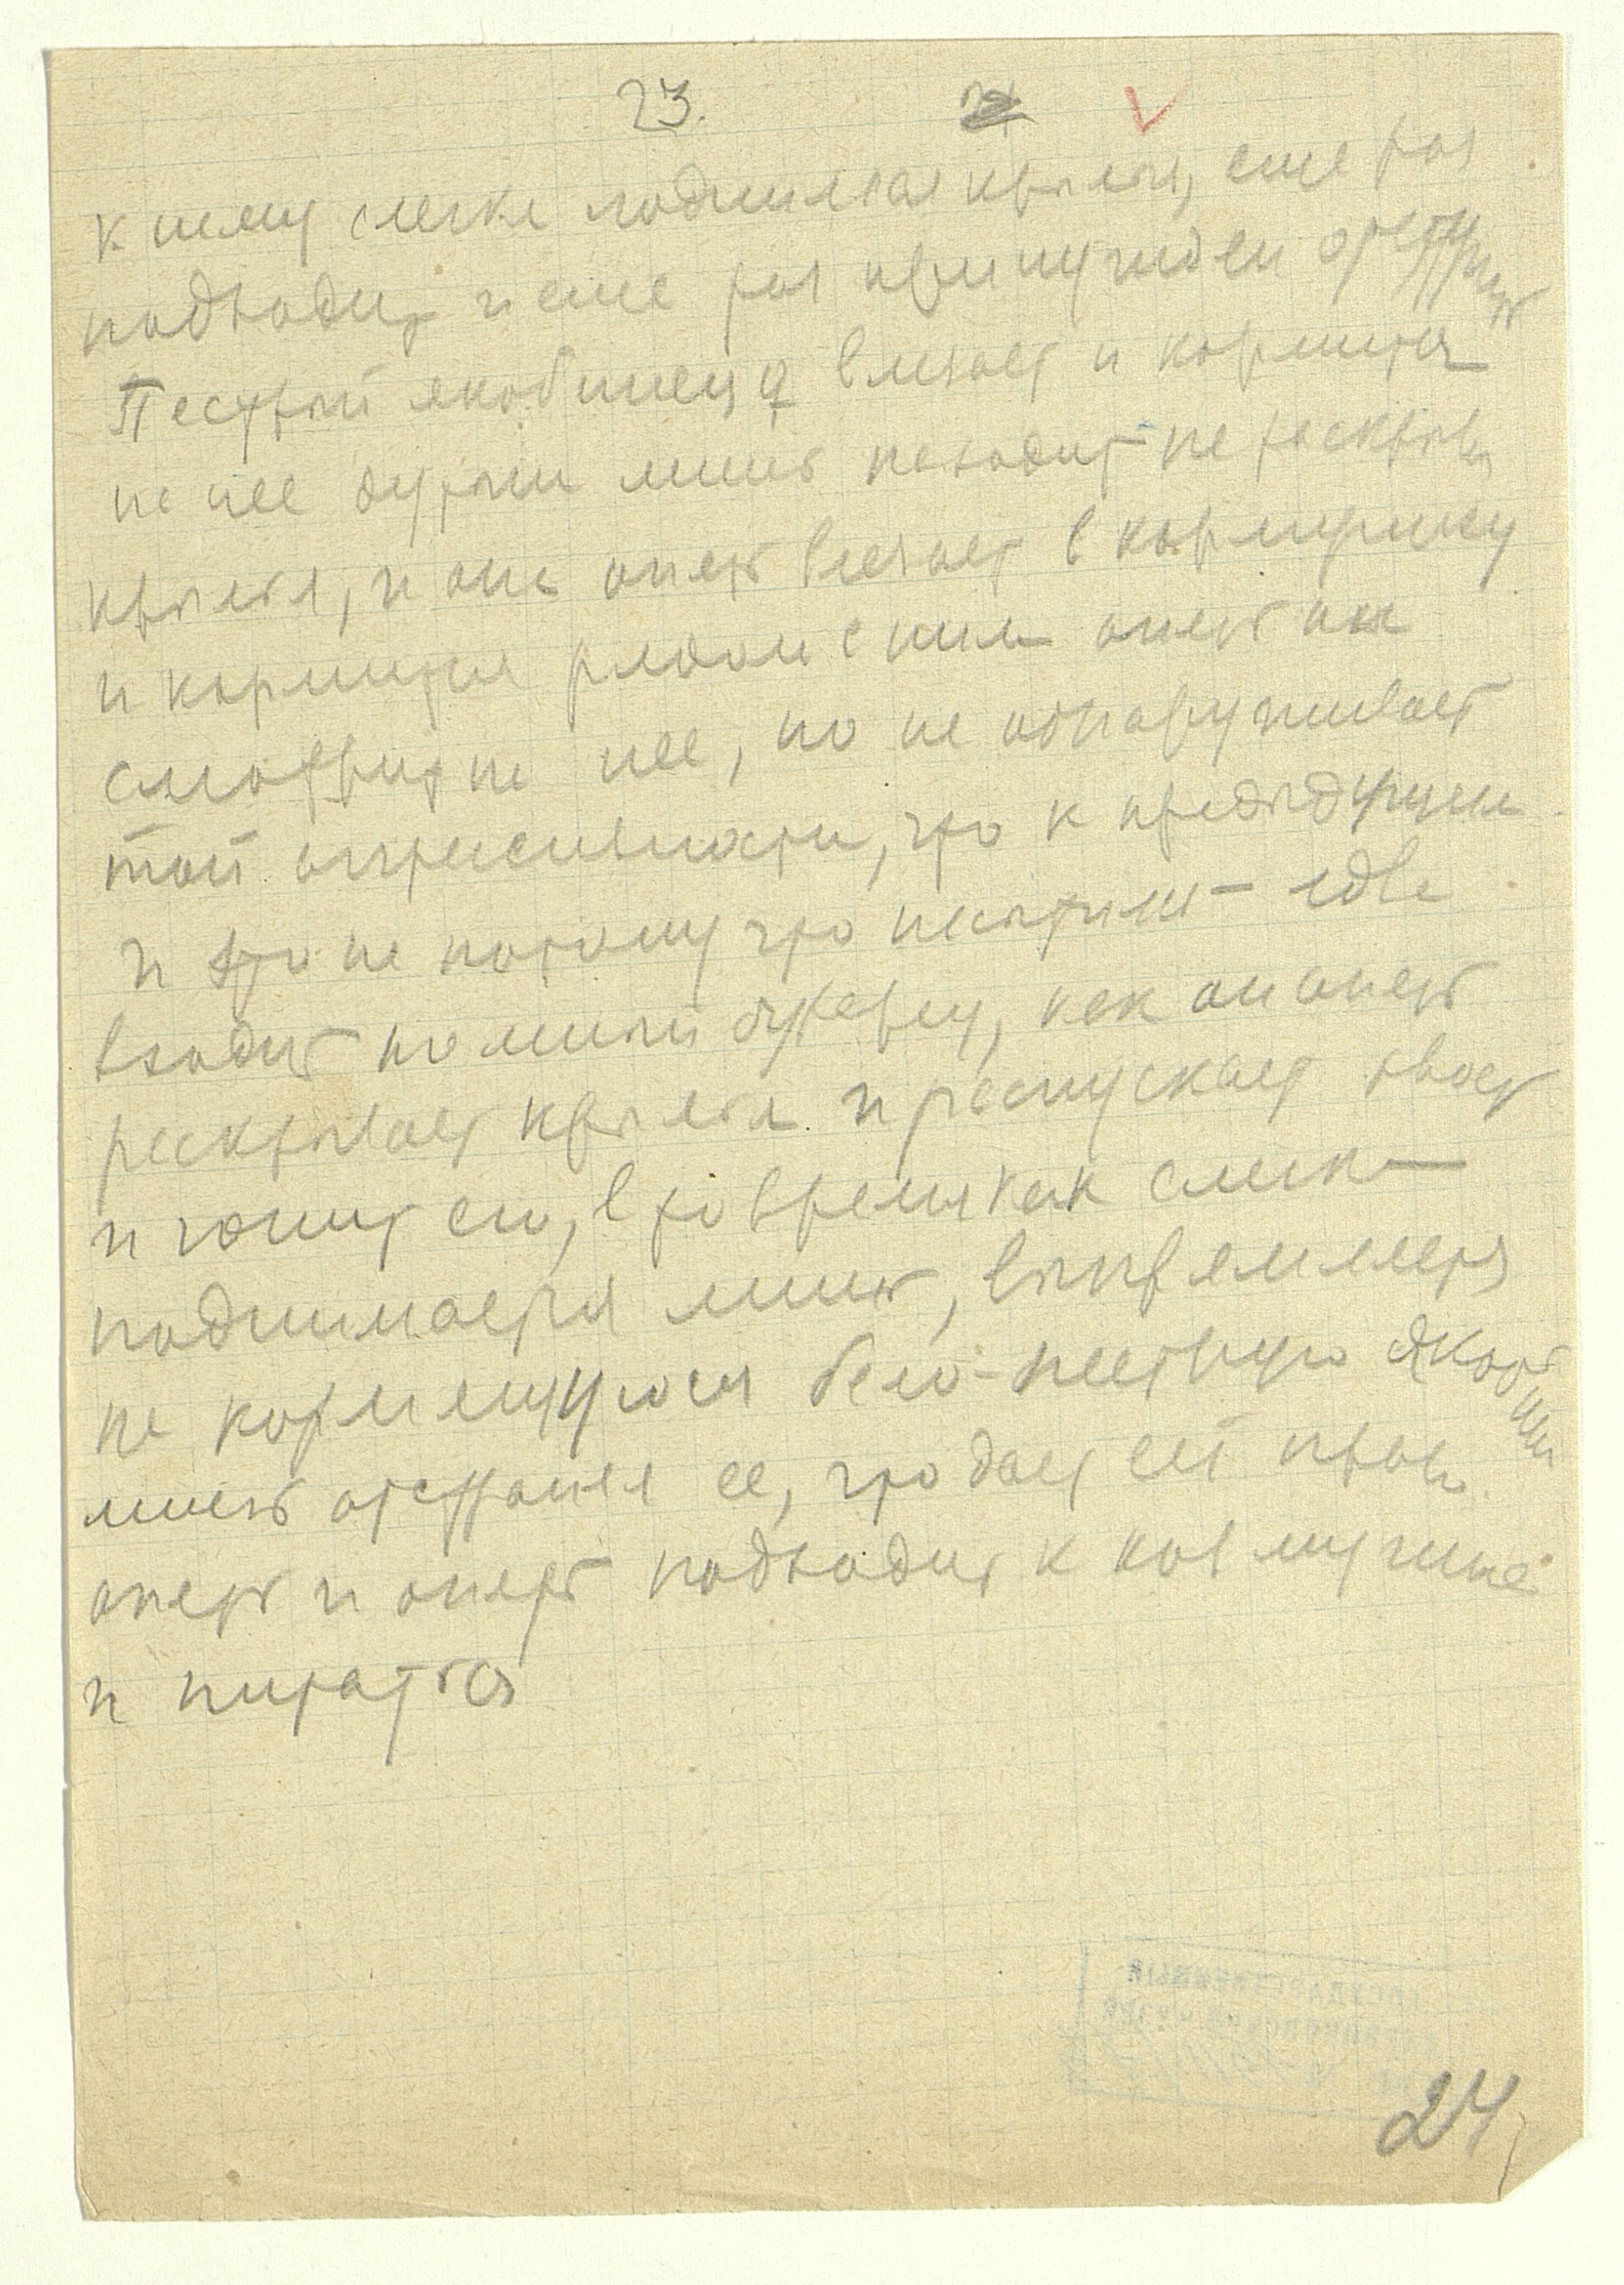 23.
к нему слегка поднимая крылья, еще раз
подходит и еще раз принужден отступить
Пестрый якобинец ♀ влезает и кормится
на нее дутыш лишь находит не раскрыв
крылья, и она опять влезает в кормушку
и кормится рядом с ним опять он
смотрит на нее, но не обнаруживает
той агрессивности, что к предыдущим
и это не потому что насытился едва
входит
раскрывает крылья и распускает хвост
и гонит его, в то время как слегка
поднимается лишь, выпрямляется
на кормящуюся бело-пеструю якобин
лишь отстраняя ее, что дает ей право
опять и опять подходить к кормушке
и питаться
ГОСУДАРСТВЕННЫЙ
24